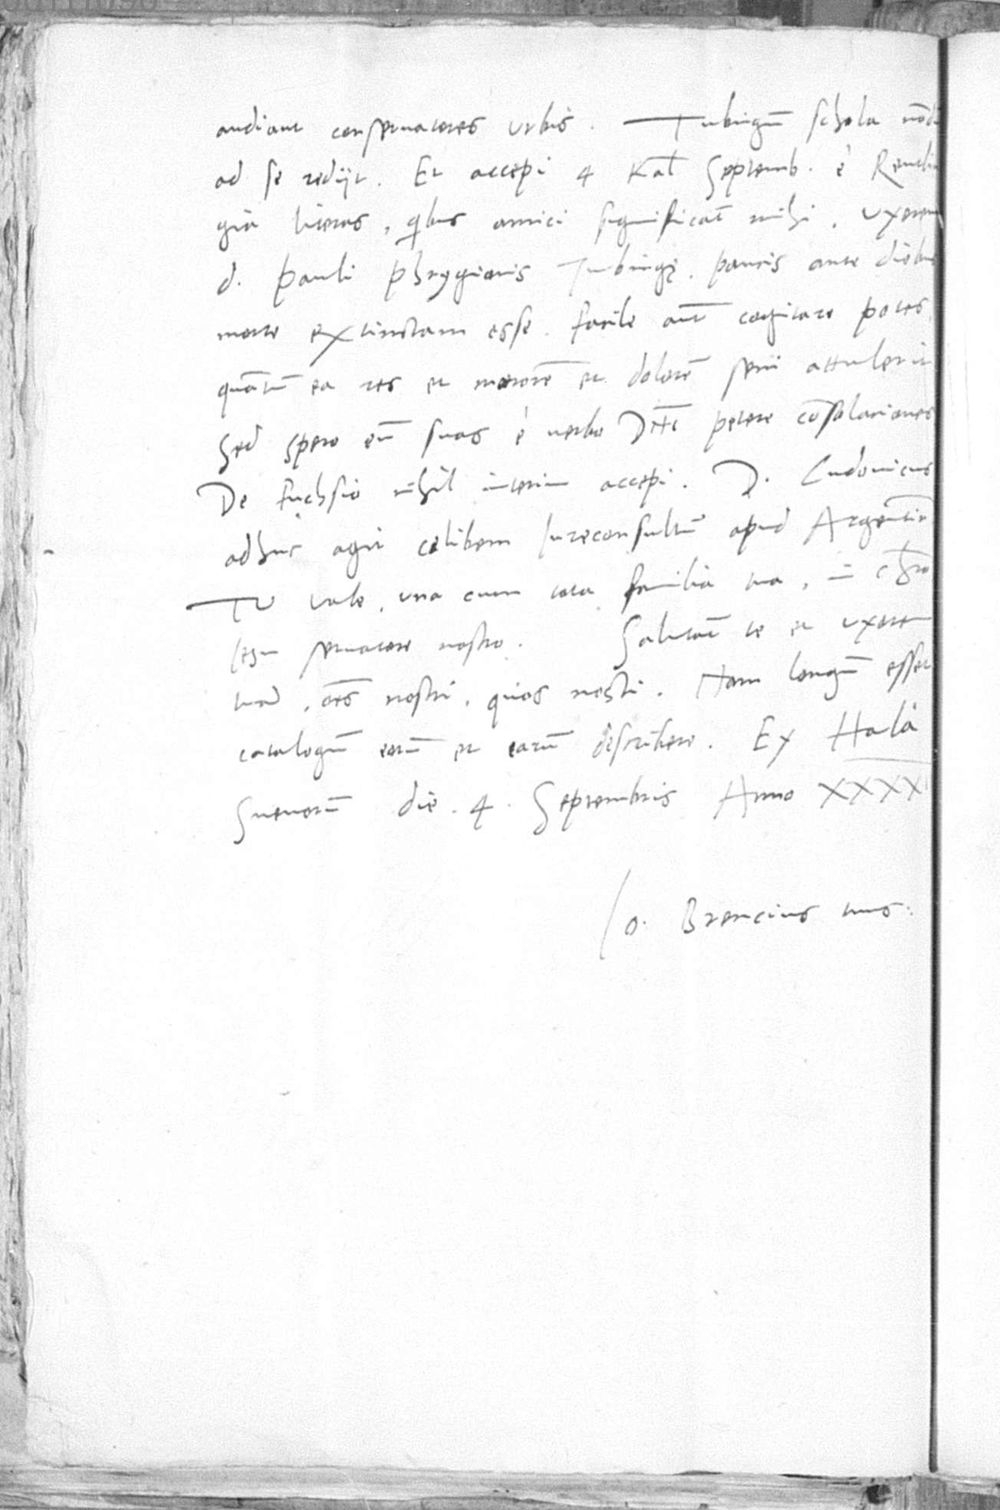 audiant conseruatores vrbis. Tubingū schola nōdū
ad se redijt. Et accepi 4 Kal Septemb. è Reutlin
gia literas, qbus amici significāt mihi, vxorem
d. Pauli Phrygionis Tubingę, paucis ante diebus
morte extinctam esse. facile aūt cogitare potes,
quātū ea res et merorē et dolorē seni attulerit
Sed spero eū suas è verbo Dnī petere cōsolationes
De fuchsio nihil interim accepi. D. Ludouicus
adhuc agit celibem Iureconsultū apud Argentin
Tu vale, vna cum tota familia tua, in chro
Iesu seruatore nostro. Salutāt te et vxorem
tuā, oēs nostri, quos nosti. Nam longū esset
catalogū eorū et earū describere. Ex Hala
Sueuorū die. 4. Septembris Anno XXXX
Io. Brencius tuus.